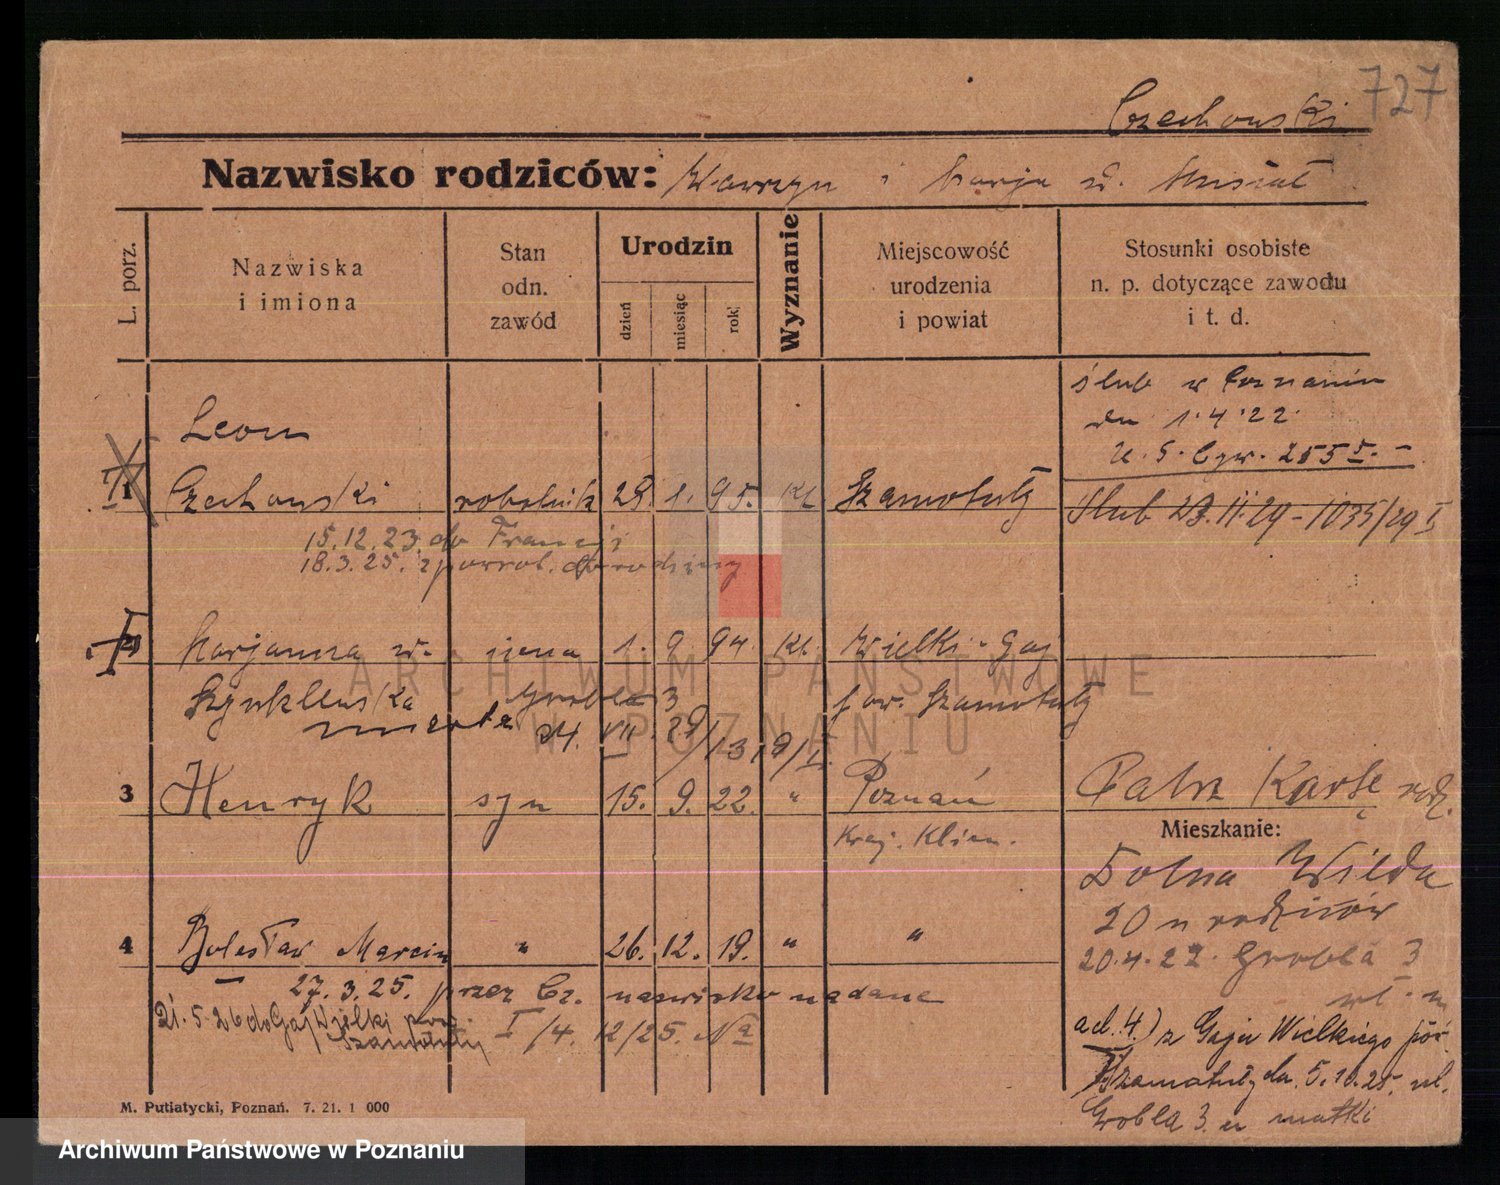 727
Czechowski
Nazwisko rodziców: Wawrzyn i Marja z d. Musiał
L. porz.
Nazwiska
i imiona
Stan
odn.
zawód
Urodzin
dzień
miesiąc
rok
Wyznanie
Miejscowość
urodzenia
i powiat
Stosunki osobiste
n. p. dotyczące zawodu
i t. d.
ślub w Poznaniu
dn 1.4.22.
U. S. 255
Leon
1 Czechowski robotnik 28. 1. 95. Kt. Szamotuły
Ślub 23.11.29 - 1035/29 I
15.12.23 do Francji
18.3.25. z powrot. do rodziny
2 Marjanna żona 1. 9. 94. Kt. Wielki-Gaj
Grobla 3 pow. Szamotuły
zmarła 24. VII. 29
3 Henryk syn 15. 9. 22. " Poznań
Patrz Kartę rodz.
Mieszkanie:
Dolna Wilda
20 u rodziców
20.4.22. Grobla 3
4 Bolesław Marcin " 26. 12. 19. " "
27.3.25. przez Cz. nazwisko nadane
21.5.26 do Gaj Wielki pow.
Szamotuły
I/4. 12/25.
ad. 4.) z Gaju Wielkiego pow.
Szamotuły dn. 5.10.25. ul.
Grobla 3. u matki
M. Putiatycki, Poznań. 7. 21. 1 000
ARCHIWUM PAŃSTWOWE
W POZNANIU
Archiwum Państwowe w Poznaniu